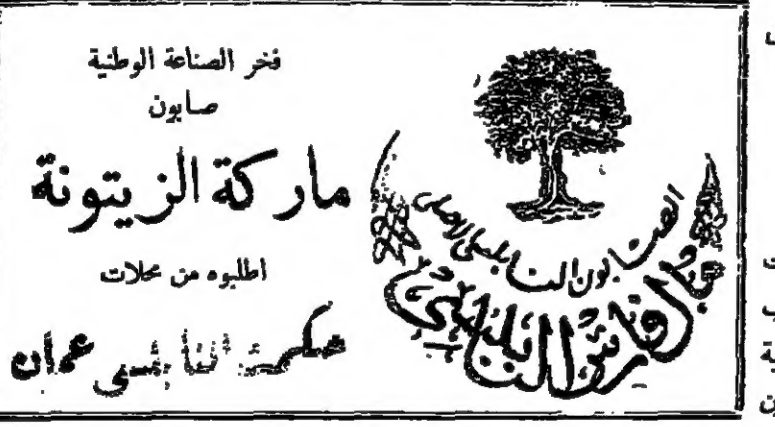 فخر الصناعة الوطنية
صابون
ماركة الزيتونة
اطلبوه من محلات
النابلسي عمان
الصابون النابلسي الاصلي
النابلسي